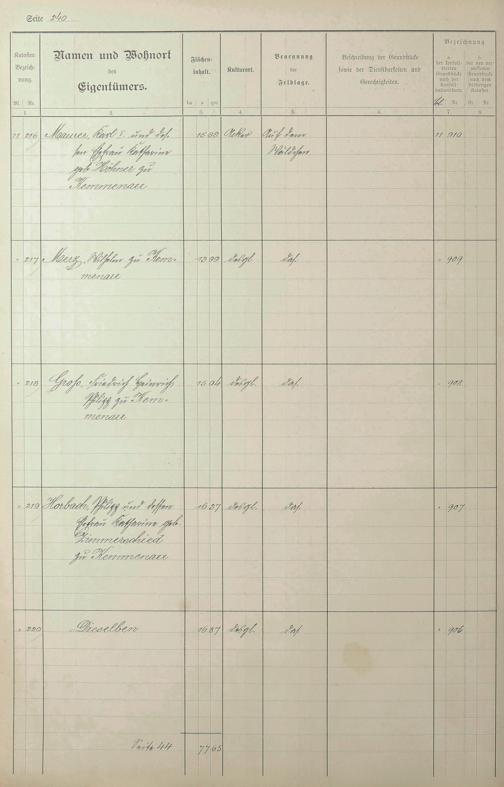 Seite 240
Kataster-Bezeich-nung. Bl. Nr.
Namen und Wohnort
des
Eigentümers.
Flächen-
inhalt.
ha a qm
Kulturart.
Benennung
der
Feldlage.
Beschreibung der Grundstücke
sowie der Dienstbarkeiten und
Gerechtigkeiten.
Bezeichnung
Bl. Nr. Bl. Nr.
1. 2. 3. 4. 5. 6. 7. 8.
11 216 Maurer, Karl I. und des- Acker Auf dem 11 910
sen Ehefrau Katharine Wäldchen
geb. Höhner zu
Kemmenau
" 217 Merz, Wilhelm zu Kem- 13 99 desgl. das. " 909
menau
" 218 Groß, Friedrich Heinrich 15 04 desgl. das. " 908
Philipp zu Kem-
menau
" 219 Horbach, Philipp und dessen 16 37 desgl. das. " 907
Ehefrau Katharine geb.
Zimmerschied
zu Kemmenau
" 220 Dieselben desgl. das. " 906
Seite 44 77 65